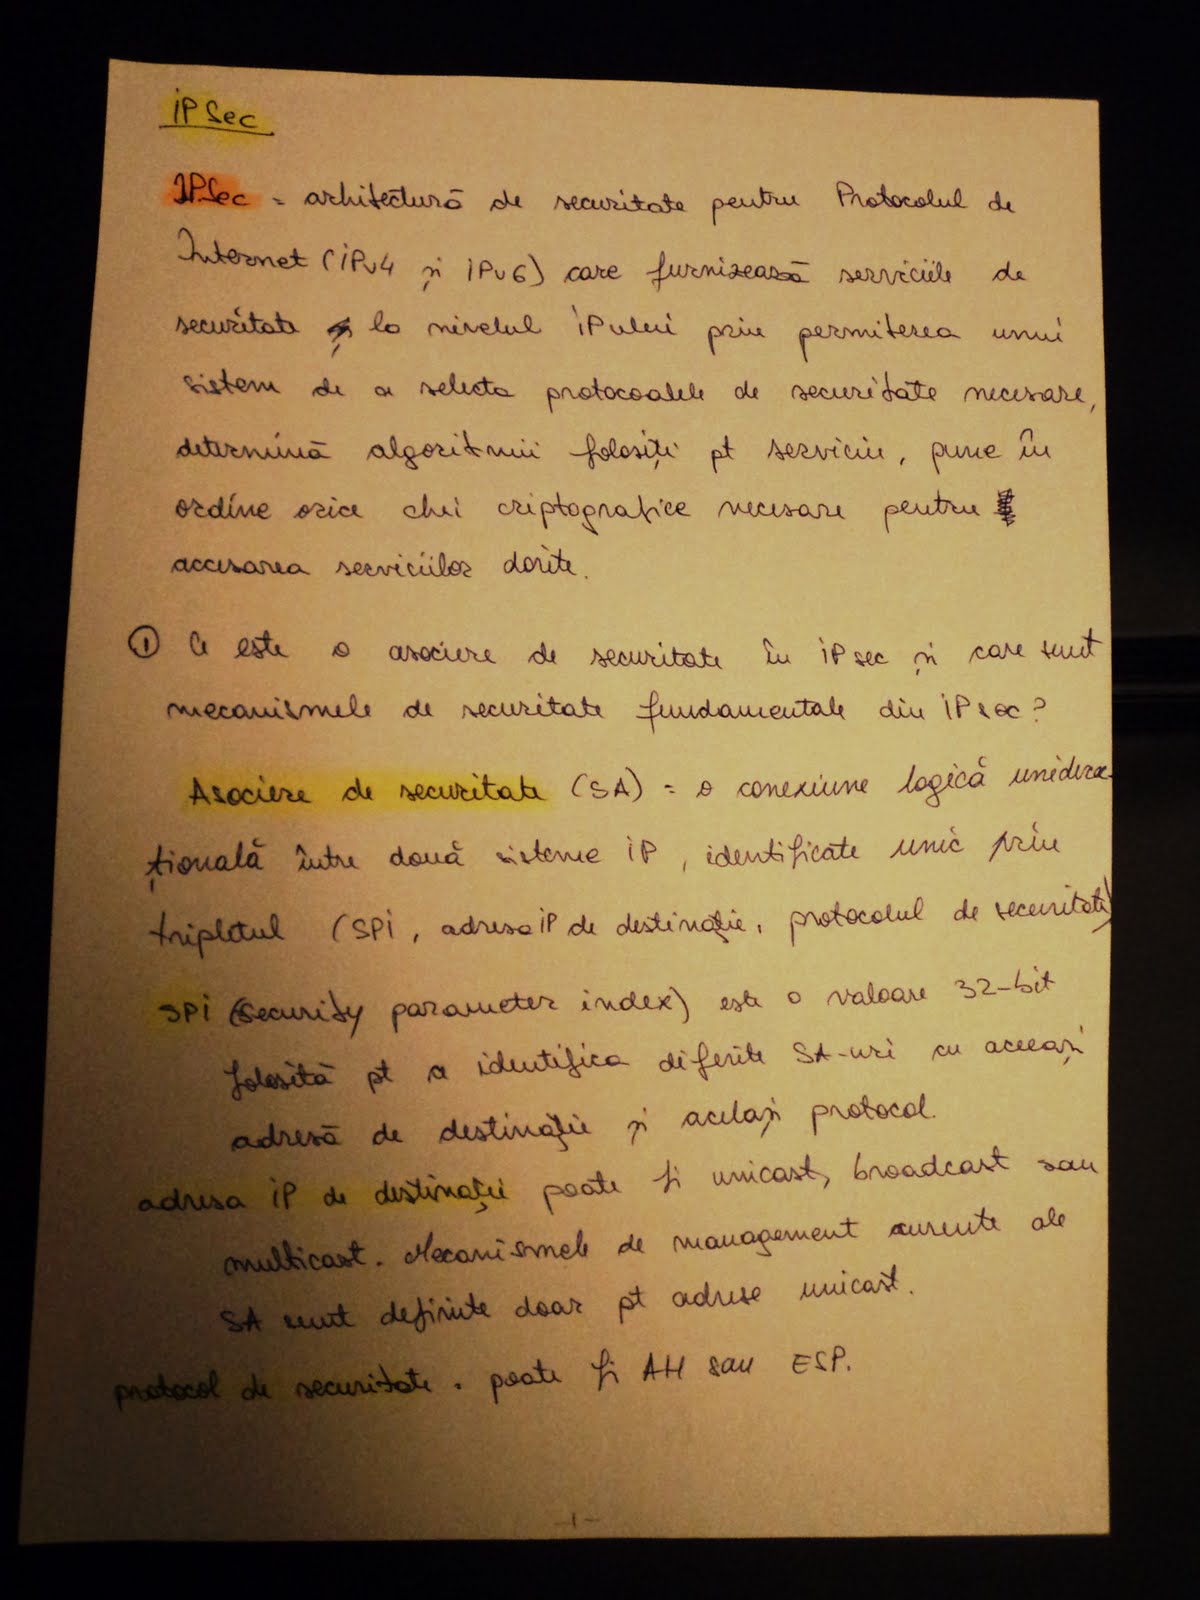 IPSec
IPSec = arhitectură de securitate pentru Protocolul de
Internet (IPv4 și IPv6) care furnizează serviciile de
securitate la nivelul IPului prin permiterea unui
sistem de a selecta protocoalele de securitate necesare,
determină algoritmii folosiți pt serviciu, pune în
ordine orice chei criptografice necesare pentru
accesarea serviciilor dorite.
① Ce este o asociere de securitate în IPsec și care sunt
mecanismele de securitate fundamentale din IPsec?
Asociere de securitate (SA) = o conexiune logică unidirec-
țională între două sisteme IP, identificate unic prin
tripletul (SPI, adresa IP de destinație, protocolul de securitate)
SPI (Security parameter index) este o valoare 32-bit
folosită pt a identifica diferite SA-uri cu aceeași
adresă de destinație și același protocol.
adresa IP de destinație poate fi unicast, broadcast sau
multicast. Mecanismele de management curente ale
SA sunt definite doar pt adrese unicast.
protocol de securitate. poate fi AH sau ESP.
-1-